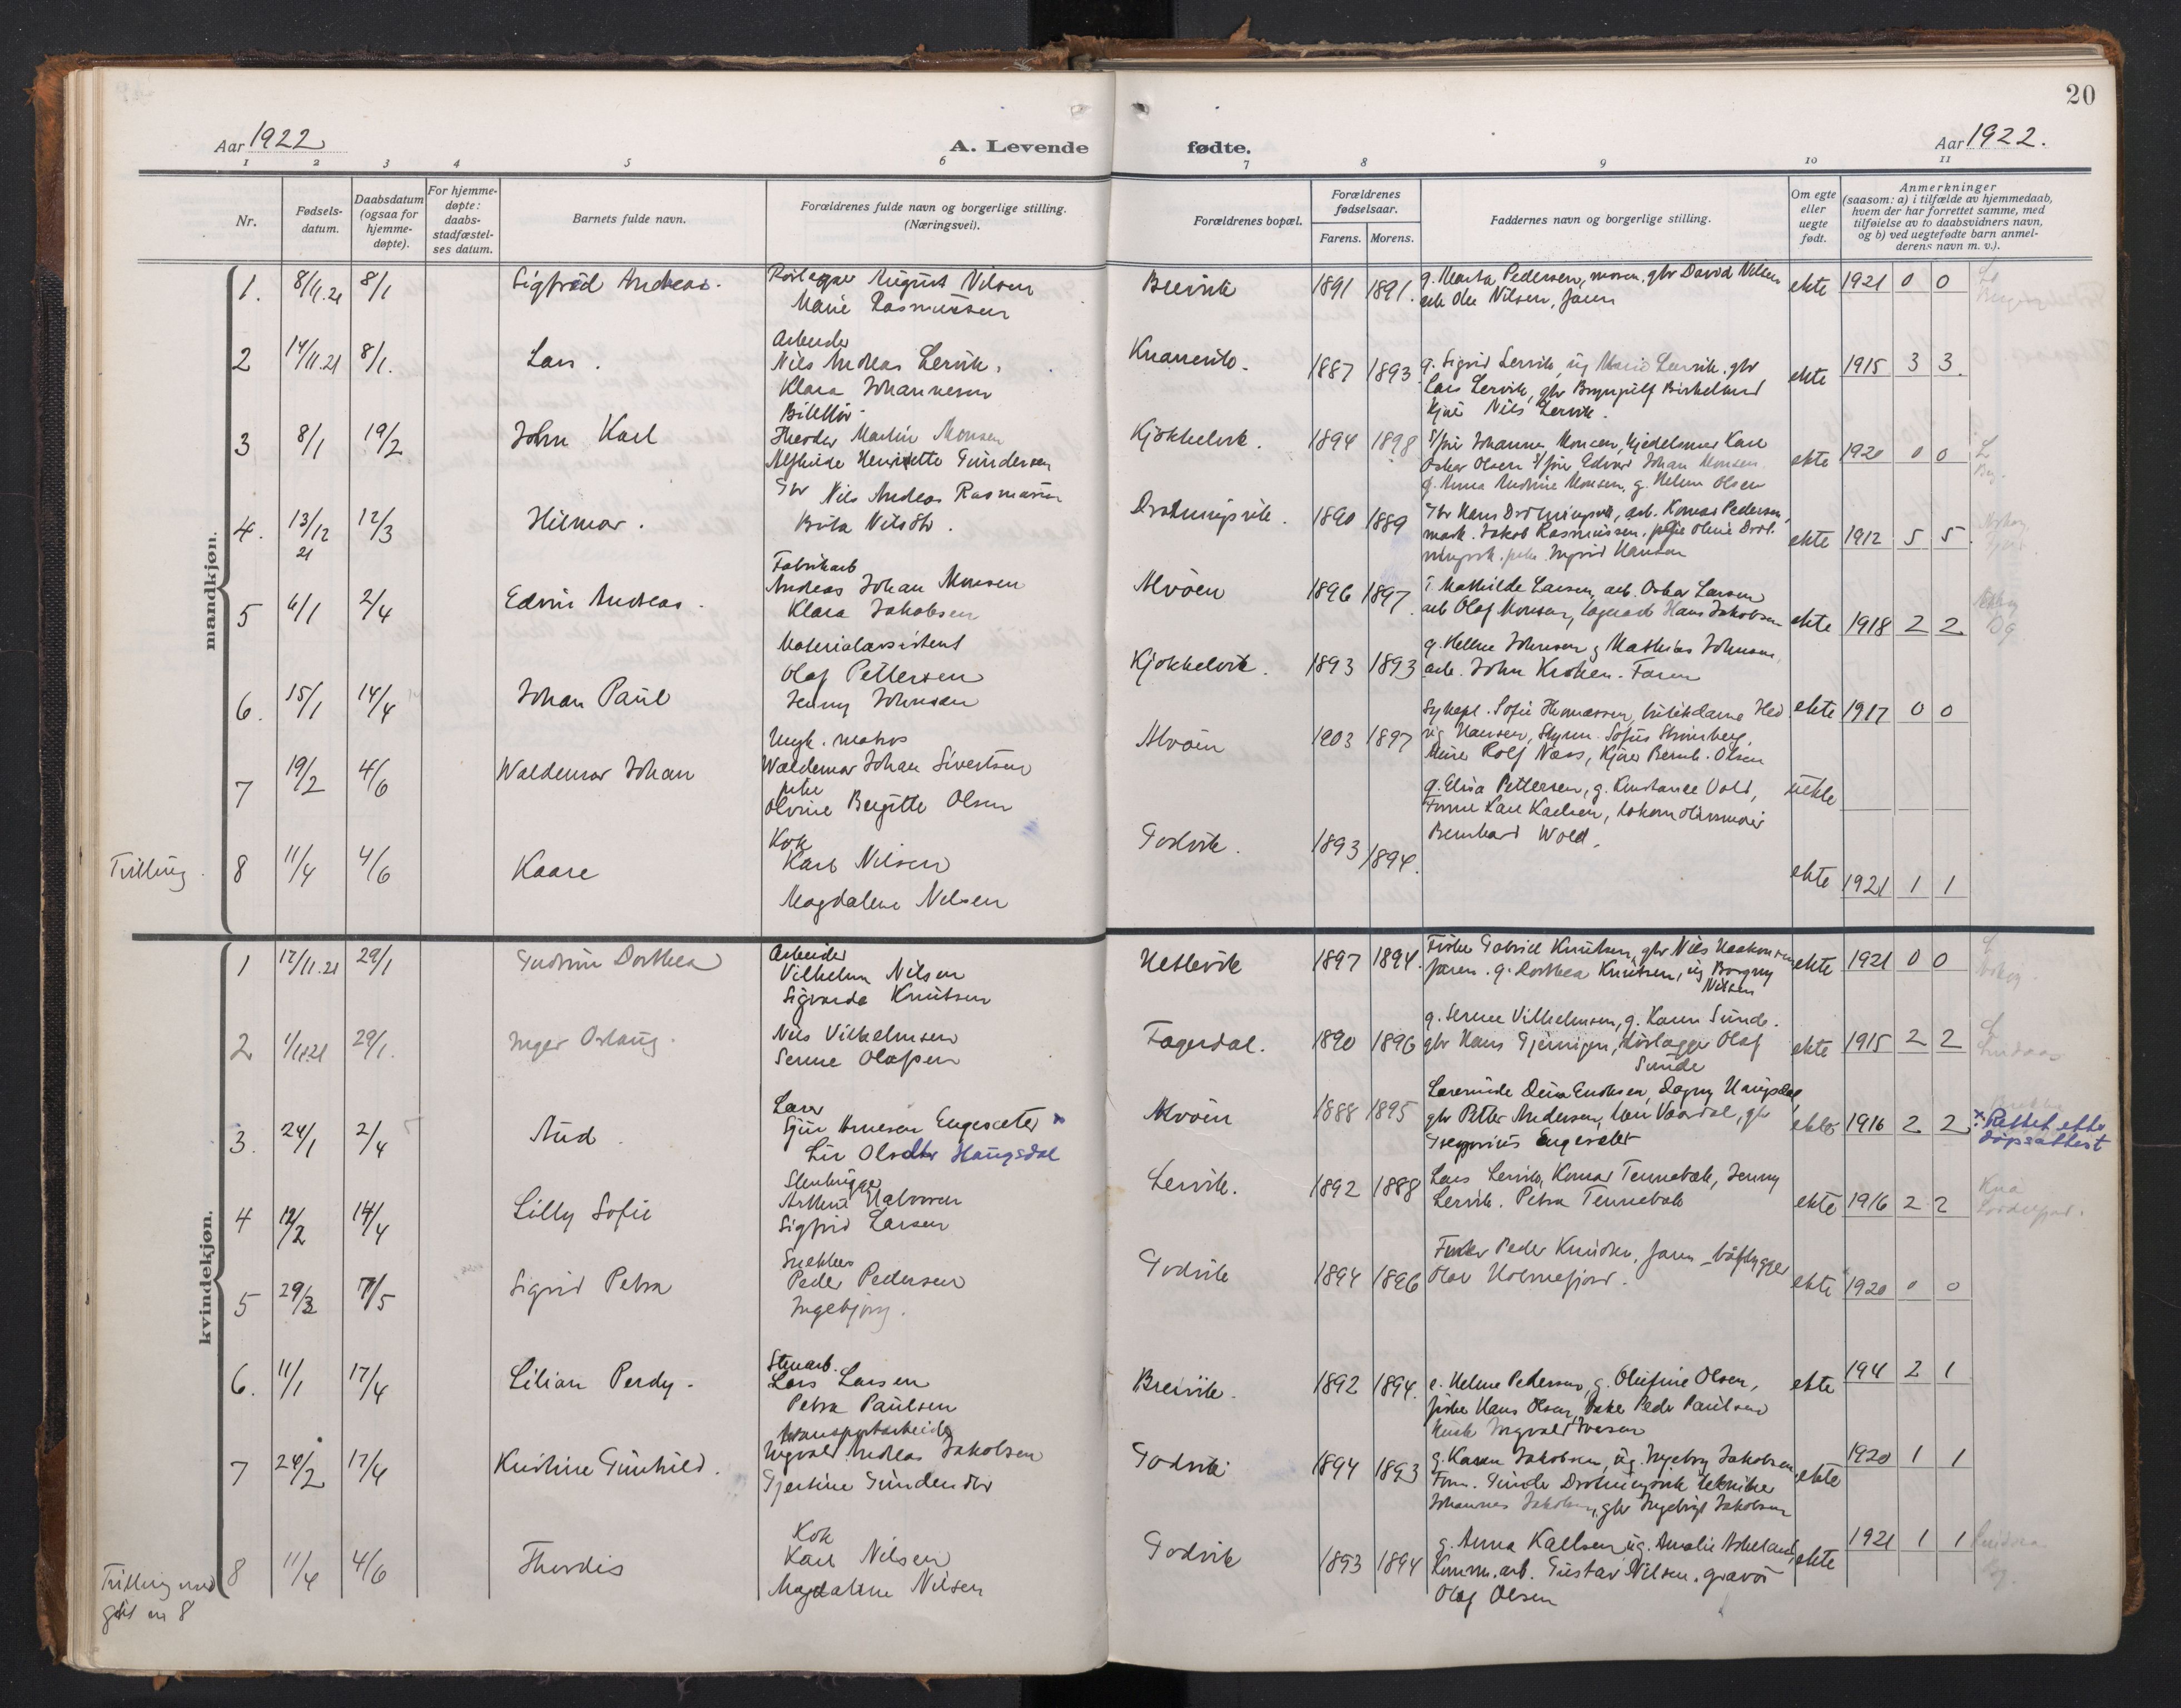 20
Aar 1922
A. Levende
fødte.
Aar 1922.
1 2 3 4 5 6 7 8 9 10 11
Nr.
Fødsels-
datum.
Daabsdatum
(ogsaa for
hjemme-
døpte).
For hjemme-
døpte:
daabs-
stadfæstel-
ses datum.
Barnets fulde navn.
Forældrenes fulde navn og borgerlige stilling.
(Næringsvei).
Forældrenes bopæl.
Forældrenes
fødselsaar.
Farens. Morens.
Faddernes navn og borgerlige stilling.
Om egte
eller
uegte
født.
Anmerkninger
(saasom: a) i tilfælde av hjemmedaab,
hvem der har forrettet samme, med
tilføielse av to daabsvidners navn,
og b) ved uegtefødte barn anmel-
derens navn m. v.).
mandkjøn.
1. 8/11.21 8/1 Sigfred Andreas. August Nilsen
Marie Rasmussen
Breivik 1891 1891. g. Marta Pedersen, moren, gbr David Nilsen
arb Ole Nilsen, faren
ekte 1921 0 0
2 14/11.21 8/1. Lars. Arbeider
Nils Andreas Lervik.
Klara Johannesen
1887 1893 g. Sigrid Lervik, ug Marie Lervik, gbr
Lars Lervik, gbr Brynjulf Birkeland
Nils Lervik.
ekte 1915 3 3.
3 8/1 19/2 John Karl
Theodor Martin Monsen
Henriette Gundersen
Kjøkkelvik. 1894 1898 Johannes Monsen, Karl
Oskar Olsen Edvard Johan Monsen.
g. Anna Andrine Monsen, g. Helene Olsen
ekte 1920 0 0
4. 13/12 21 12/3 Hilmar.
Gbr Nils Andreas Rasmussen
Brita Nilsdtr.
Drotningsvik. 1890 1889 Gbr Hans Drotningsvik, arb. Konrad Pedersen,
Jakob Rasmussen, pike Oline Drot-
ningsvik. pike Ingrid Hansen
ekte 1912 5 5.
5 6/1 2/4 Edvin Andreas.
Fabrikarb
Andreas Johan Monsen
Klara Jakobsen
Alvøen 1896 1897. Mathilde Larsen, arb. Oskar Larsen
arb Olaf Monsen, lagerarb Hans Jakobsen
ekte 1918 2 2
6. 15/1 14/4 Johan Paul
Materialassistent
Olaf Pettersen
Jenny Johnsen
Kjøkkelvik. 1893 1893 g. Helene Johnsen g Mathias Johnsen,
arb. John Kroken. Faren
ekte 1917 0 0
7 19/2 4/6 Waldemar Johan
Ungk. matros
Waldemar Johan Sivertsen
pike
Olvine Birgitte Olsen
Alvøen 1903 1897 Sykepl. Sofie Thomassen, butikdame Hed
vig Hansen, Styrm. Sofus Stromberg,
Rolf Næss, Kjører Bernh. Olsen
uekte
Trilling. 8 11/4 4/6 Kaare
Kok
Karl Nilsen
Magdalene Nilsen
Godvik. 1893 1894. g. Elisa Pettersen, g. Konstance Vold,
Karl Karlsen,
Bernhard Wold.
ekte 1921 1 1
kvindekjøn.
1 12/11.21 29/1 Gudrun Dorthea
Arbeider
Vilhelm Nilsen
Sigvarda Knutsen
Hetlevik 1897 1894. Fisker Gabriel Knutsen, gbr Nils Haakonsen
faren. g. Dorthea Knutsen, ug Borgny
Nilsen
ekte 1921 0 0
2 29/1. Inger Oslaug.
Nils Vilhelmsen
Serine Olafsen
Fagerdal. 1890 1896 g. Serine Vilhelmsen, g. Karen Sunde.
gbr Hans Olaf
Sunde
ekte 1915 2 2
3. 24/1 2/4 Aud
Lærer
Sjur Arnesen Engesæter x
Liv Olsdtr Haugsdal
Alvøen 1888 1895 Lærerinde Dina Eriksen, Dagny Haugsdal
gbr Petter Andersen, gbr
Engesæter
ekte 1916 2 2 x: Rettet efter
dåpsattest
4 12/2 14/4 Lilly Sofie
Stenbrygger
Arthur Halvorsen
Sigfrid Larsen
Lervik. 1892 1888 Lars Lervik, Konrad Tennebæk, Jenny
Lervik. Petra Tennebæk
ekte 1916 2 2
5 29/3 7/5 Sigrid Petra
Snekker
Peder Pedersen
Ingebjørg.
Godvik 1894 1896 Fisker Peder Knudsen, faren, båtbygger
Olav Holmefjord.
ekte 1920 0 0
6. 11/1 17/4 Lilian Perdy.
Stenarb.
Lars Larsen
Petra Paulsen
Breivik. 1892 1894. g. Helene Pedersen, g. Olufine Olsen,
fisker Hans Olsen, Peder Paulsen
Ingvald Iversen
ekte 194 2 1
7 24/2 17/4 Kristine Gunhild.
transportarbeider
Ingvald Andreas Jakobsen
Gjertine Gundersdtr
Godvik 1894 1893 g. Karen Jakobsen, ug. Ingeborg Jakobsen
Gunder Drotningsvik tekniker
Johannes Jakobsen, gbr Ingebrigt Jakobsen
ekte 1920 1 1
Trilling med
gut nr 8
8 11/4 4/6 Thordis
Kok
Karl Nilsen
Magdalene Nilsen
Godvik 1893 1894 g. Anna Karlsen ug. Amalie Askeland,
Komm. arb. Gustav Nilsen. gravør
Olaf Olsen
ekte 1921 1 1